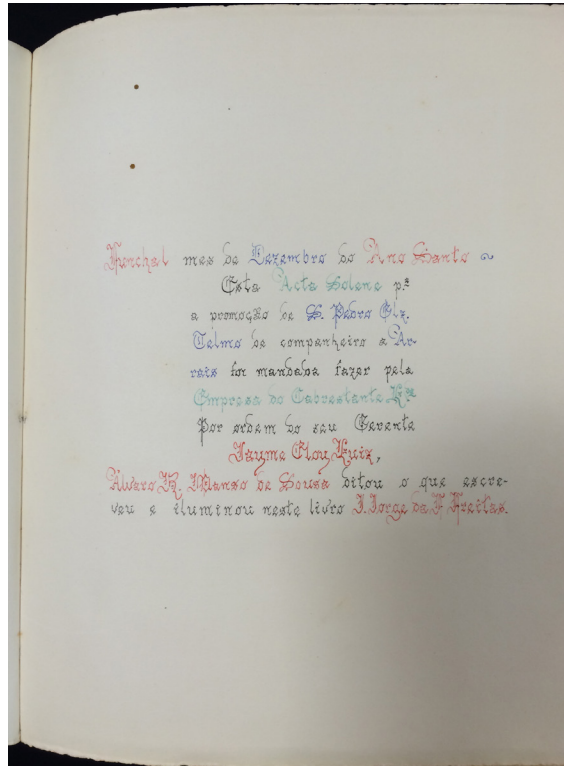 Funchal mes de Dezembro do Ano Santo ~
Esta Acta Solene p.ª
a promoção de S. Pedro Glz.
Telmo de companheiro a Ar-
rais foi mandada fazer pela
Empresa do Cabrestante L.da
Por ordem do seu Gerente
Jayme Eloy Luiz,
Álvaro Manso de Sousa ditou o que escre-
veu e iluminou neste livro J. Jorge da F. Freitas.